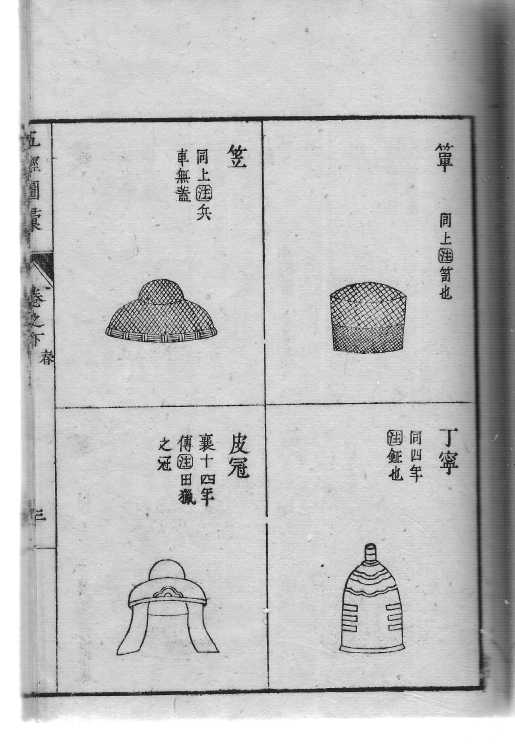 簞
同上注笥也
丁寧
同四年
注鉦也
笠
同上注兵
車無蓋
皮冠
襄十四年
傳注田獵
之冠
五經圖彙
卷之下
春
三